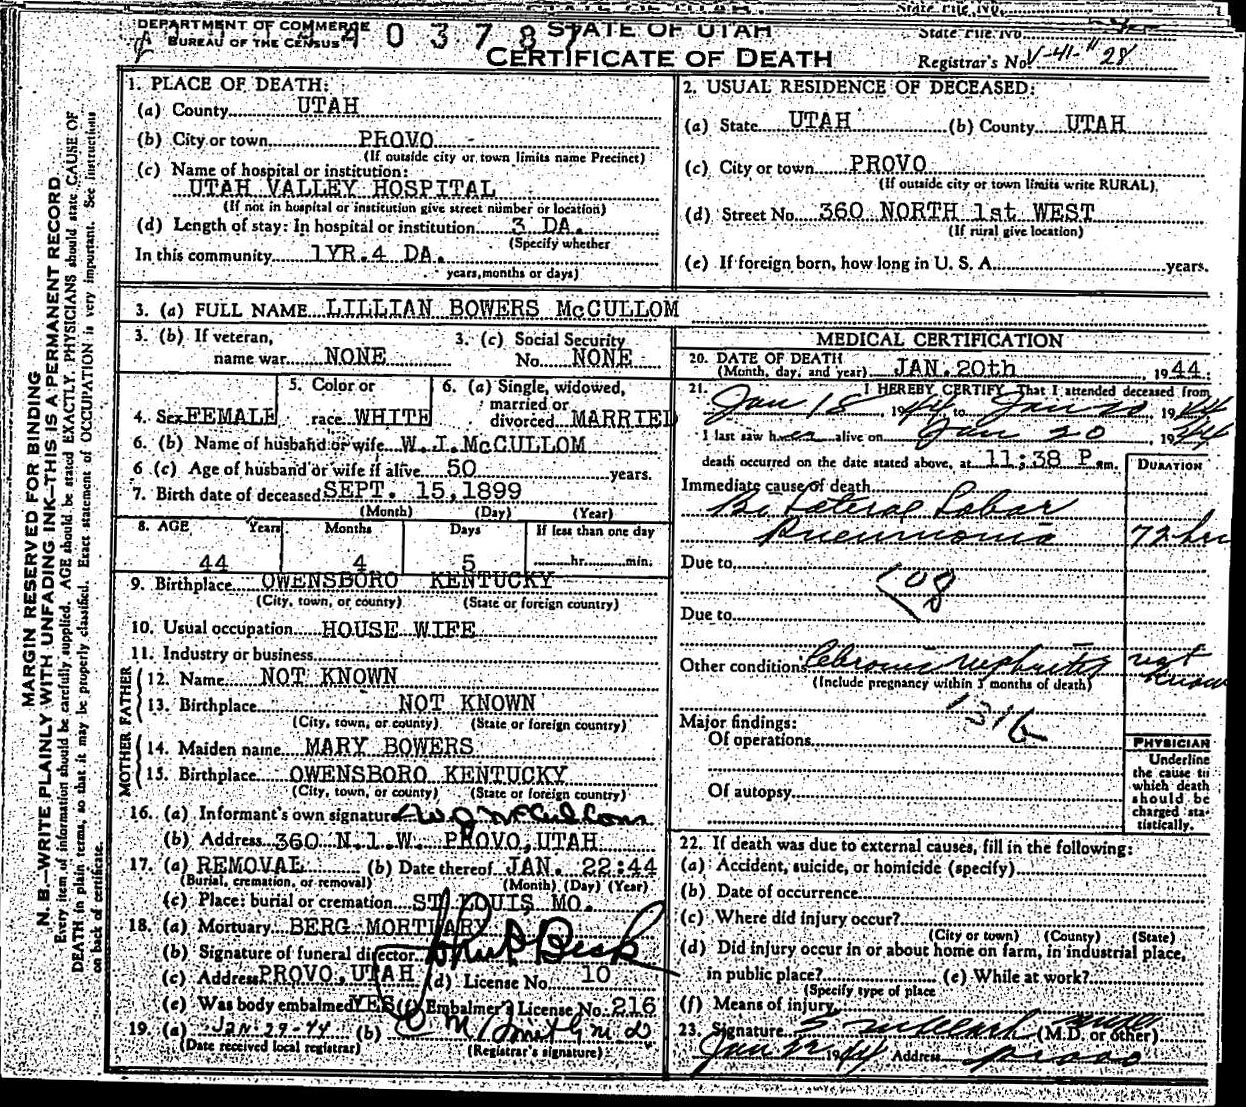 DEPARTMENT OF COMMERCE
BUREAU OF THE CENSUS
STATE OF UTAH
CERTIFICATE OF DEATH
State File No.
Registrar's No. V-41-"28
MARGIN RESERVED FOR BINDING
N. B.—WRITE PLAINLY WITH UNFADING INK—THIS IS A PERMANENT RECORD
Every item of information should be carefully supplied. AGE should be stated EXACTLY. PHYSICIANS should state CAUSE OF
DEATH in plain terms, so that it may be properly classified. Exact statement of OCCUPATION is very important. See instructions
on back of certificate.
1. PLACE OF DEATH:
(a) County UTAH
(b) City or town PROVO
(If outside city or town limits name Precinct)
(c) Name of hospital or institution:
UTAH VALLEY HOSPITAL
(If not in hospital or institution give street number or location)
(d) Length of stay: In hospital or institution 3 DA.
(Specify whether
In this community 1YR.4 DA.
years, months or days)
2. USUAL RESIDENCE OF DECEASED:
(a) State UTAH (b) County UTAH
(c) City or town PROVO
(If outside city or town limits write RURAL)
(d) Street No. 360 NORTH 1st WEST
(If rural give location)
(e) If foreign born, how long in U. S. A. years.
3. (a) FULL NAME LILLIAN BOWERS McCULLOM
3. (b) If veteran, 3. (c) Social Security
name war NONE No. NONE
4. Sex FEMALE
5. Color or
race WHITE
6. (a) Single, widowed,
married or
divorced MARRIED
6. (b) Name of husband or wife W.I.McCULLOM
6 (c) Age of husband or wife if alive 50 years.
7. Birth date of deceased SEPT. 15,1899
(Month) (Day) (Year)
8. AGE Years Months Days If less than one day
44 4 5 hr. min.
9. Birthplace OWENSBORO KENTUCKY
(City, town, or county) (State or foreign country)
10. Usual occupation HOUSE WIFE
11. Industry or business
FATHER
12. Name NOT KNOWN
13. Birthplace NOT KNOWN
(City, town, or county) (State or foreign country)
MOTHER
14. Maiden name MARY BOWERS
15. Birthplace OWENSBORO KENTUCKY
(City, town, or county) (State or foreign country)
16. (a) Informant's own signature W J McCullom
(b) Address 360 N.1.W. PROVO,UTAH
17. (a) REMOVAL (b) Date thereof JAN. 22:44
(Burial, cremation, or removal) (Month) (Day) (Year)
(c) Place: burial or cremation ST LOUIS MO.
18. (a) Mortuary BERG MORTUARY
(b) Signature of funeral director
(c) Address PROVO,UTAH (d) License No. 10
(e) Was body embalmed YES (f) Embalmer's License No. 216
19. (a) JAN-29-44 (b)
(Date received local registrar) (Registrar's signature)
MEDICAL CERTIFICATION
20. DATE OF DEATH
(Month, day, and year) JAN. 20th 1944.
21. I HEREBY CERTIFY That I attended deceased from
Jan 18, 1944, to Jan 20 1944
I last saw her alive on Jan 20 1944
death occurred on the date stated above, at 11:38 P.m.
DURATION
Immediate cause of death
Bi lateral Lobar
Pneumonia 72 hrs
Due to
108
Due to
Other conditions Chronic nephritis not know
(Include pregnancy within 3 months of death)
131b
Major findings:
Of operations
Of autopsy
PHYSICIAN
Underline
the cause to
which death
should be
charged sta-
tistically.
22. If death was due to external causes, fill in the following:
(a) Accident, suicide, or homicide (specify)
(b) Date of occurrence
(c) Where did injury occur?
(City or town) (County) (State)
(d) Did injury occur in or about home on farm, in industrial place,
in public place? (e) While at work?
(Specify type of place
(f) Means of injury
23. Signature (M.D. or other)
Jan 22 1944 Address Provo